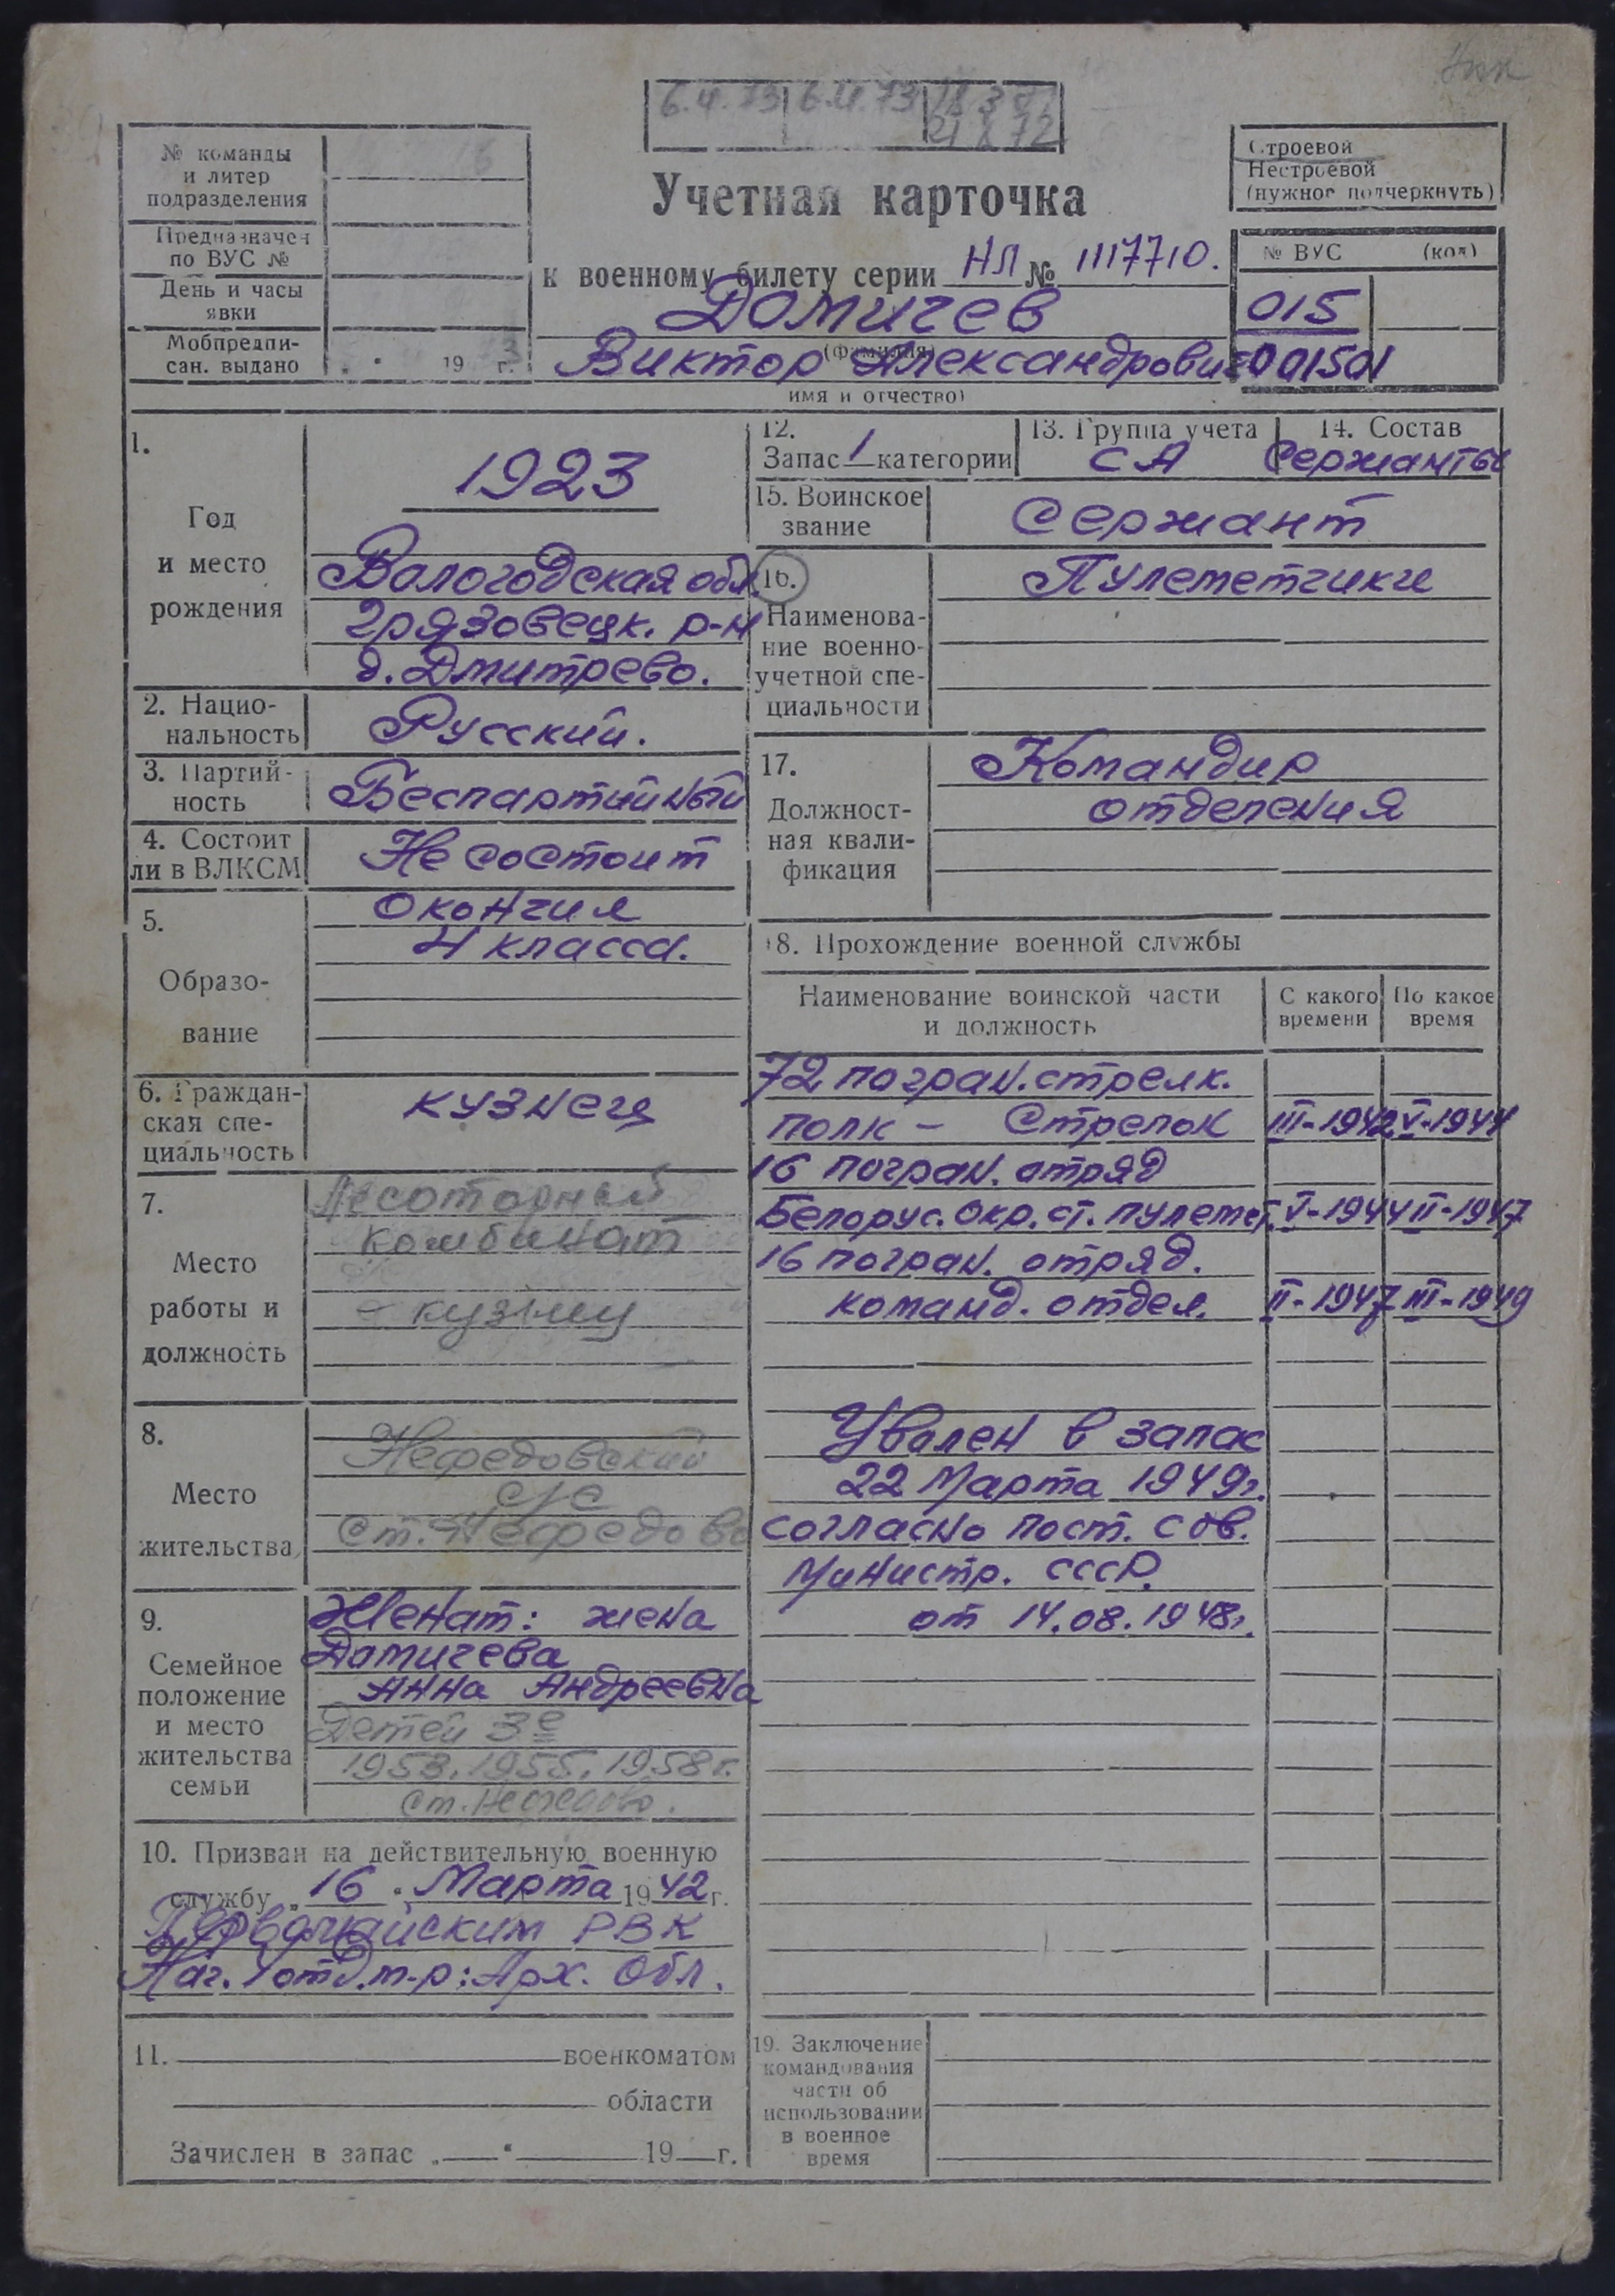 6.4.73 6.4.73
№ команды
и литер
подразделения
Предназначен
по ВУС №
День и часы
явки
Мобпредпи-
сан. выдано
19 г.
Учетная карточка
к военному билету серии НЛ № 1117710.
Домичев
(фамилия)
Виктор Александрович
имя и отчество)
Строевой
Нестроевой
(нужное подчеркнуть)
№ ВУС (код)
015
001501
1.
Год
и место
рождения
1923
Вологодская обл.
Грязовецк. р-н
д. Дмитрево.
2. Нацио-
нальность
Русский.
3. Партий-
ность
Беспартийный
4. Состоит
ли в ВЛКСМ
Не состоит
5.
Образо-
вание
Окончил
4 класса.
6. Граждан-
ская спе-
циальность
кузнец
7.
Место
работы и
должность
комбинат
8.
Место
жительства
Нефедовский
с/с
ст. Нефедово
9.
Семейное
положение
и место
жительства
семьи
Женат: жена
Домичева
Анна Андреевна
Детей 3е
1953, 1955, 1958 г.
ст. Нефедово.
10. Призван на действительную военную
службу „16" Марта 1942 г.
Первомайским РВК
обл.
11. военкоматом
области
Зачислен в запас „ " 19 г.
12.
Запас 1 категории
13. Группа учета
СА
14. Состав
Сержанты
15. Воинское
звание
Сержант
16.
Наименова-
ние военно-
учетной спе-
циальности
Пулеметчики
17.
Должност-
ная квали-
фикация
Командир
отделения
18. Прохождение военной службы
Наименование воинской части
и должность
С какого
времени
По какое
время
72 погран. стрелк.
полк – Стрелок III-1942 V-1944
16 погран. отряд
Белорус. окр. ст. пулемет. V-1944 II-1947
16 погран. отряд.
команд. отдел. II-1947 III-1949
Уволен в запас
22 Марта 1949г.
согласно пост. Сов.
Министр. СССР.
от 14.08.1948г.
19. Заключение
командования
части об
использовании
в военное
время